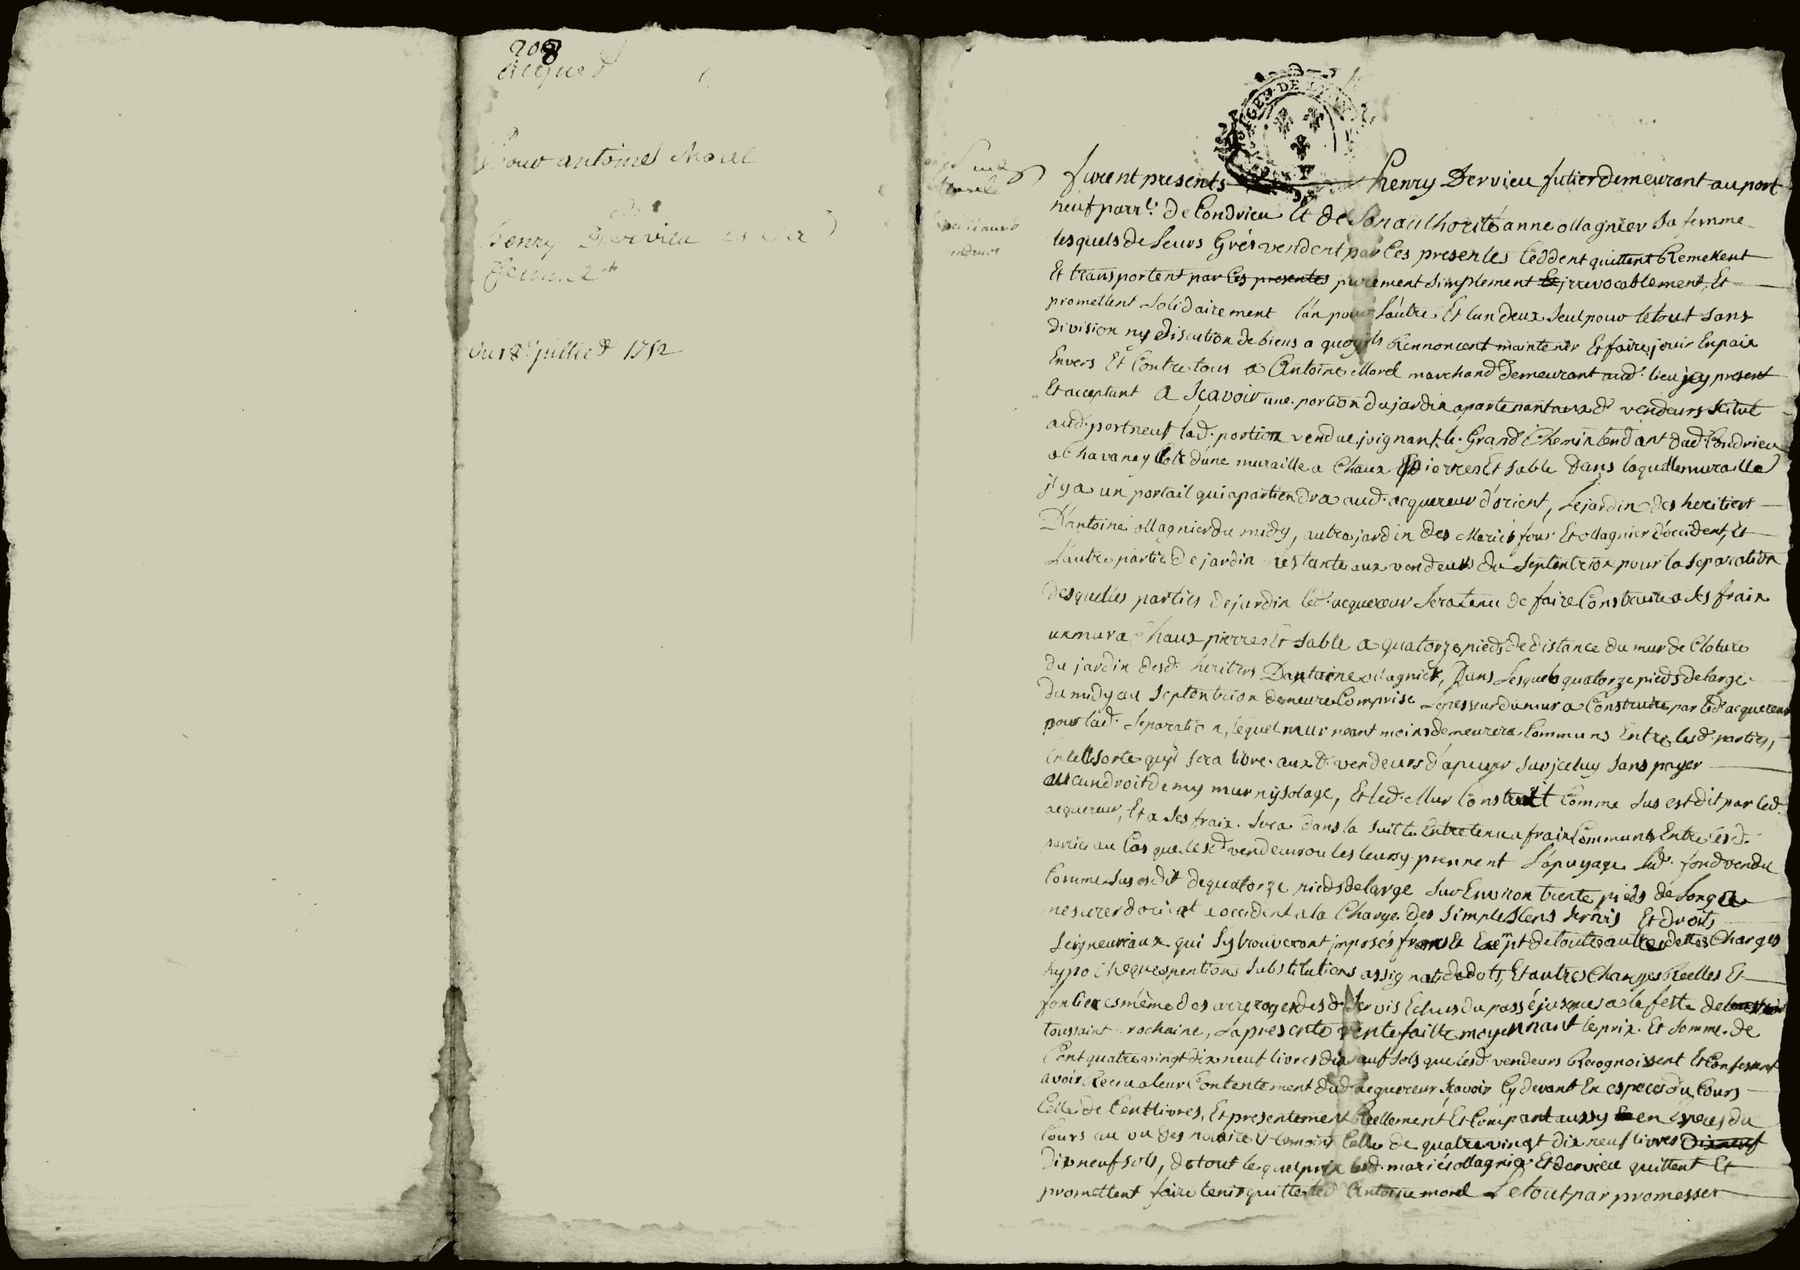 208
acques
Pour antoine Morel
henry Dervieu et sa
femme
Du 8e juillet 1752
furent presents henry Dervieu futier demeurant au port
neuf parr.e de Condrieu et de son authorité anne ollagnier sa femme
lesquels de leurs Grés vendent par ces presentes cedent quittent Remettent
Et transportent par ces presentes purement simplement et irrevocablement, Et
promettent solidairement l'un pour l'autre Et lun deux seul pour le tout sans
division ny discution de biens a quoy ils Rennoncent maintenir Et faire jouir En paix
Envers Et Contre tous a Antoine Morel marchand demeurant aud. lieu jcy present
Et acceptant a sçavoir une portion du jardin apartenant aux d. vendeurs situé
aud. port neuf lad. portion vendue joignant le Grand Chemin tendant dud. Condrieu
a Chavaney Clotz d'une muraille a Chaux pierres Et sable Dans laquelle muraille
jl y a un portail qui apartiendra aud. acquereur d'orient, le jardin des heritiers
D'antoine ollagnier du midy, autre jardin des Mariés four Et ollagnier d'occident, Et
l'autre partie de jardin restante aux vendeurs du septentrion pour la separation
desquelles parties de jardin led. acquereur sera tenu de faire Construire a ses frais
un mur a Chaux pierres Et sable a quatorze pieds de distance du mur de Cloture
du jardin desd. heritiers D'antoine ollagnier, Dans lesquels quatorze pieds de large
du midy au septentrion demeure Comprise l'epesseur du mur a Construire par led. acquereur
pour lad. separation, lequel mur neant moins demeurera Commun Entre lesd. parties,
En telle sorte qu'il sera libre aux d. vendeurs d'apuyer sur jceluy sans payer
aucun droit de my mur ny solage, Et led. Mur Construit Comme sus est dit par led.
acquereur, Et a ses frais sera dans la suitte Entretenu a frais Communs Entre lesd.
parties au Cas que lesd. vendeurs ou les leurs y prennent l'apuyage lad. fond vendu
Comme sus est dit de quatorze pieds de large sur Environ trente pieds de long a
mesurer d'orient a occident a la Charge des simples Cens servis Et droits
seigneuriaux qui s'y trouveront jmposés franc Et Exempt de toutes autres dettes Charges
hypotheques pentions substitutions assignat de dots, Et autres Charges Reelles Et
fontieres même des arrerages desd. servis Echus du passé jusques a la feste de
toussaint prochaine, la presente vente faitte moyennant le prix Et somme de
Cent quatre vingt dix neuf livres dix neuf sols que lesd. vendeurs Recognoissent Et Confessent
avoir Receu a leur Contentement dud. acquereur sçavoir Cy devant En especes du Cours
Celle de Cent livres, Et presentement Reellement Et Comptant aussy en especes du
Cours au vu des notaire Et temoins Celle de quatre vingt dix neuf livres dix neuf
dix neuf sols, de tout lequel prix lesd. mariés ollagnier Et dervieu quittent Et
promettent faire tenir quitte led. Antoine morel Le tout par promesses